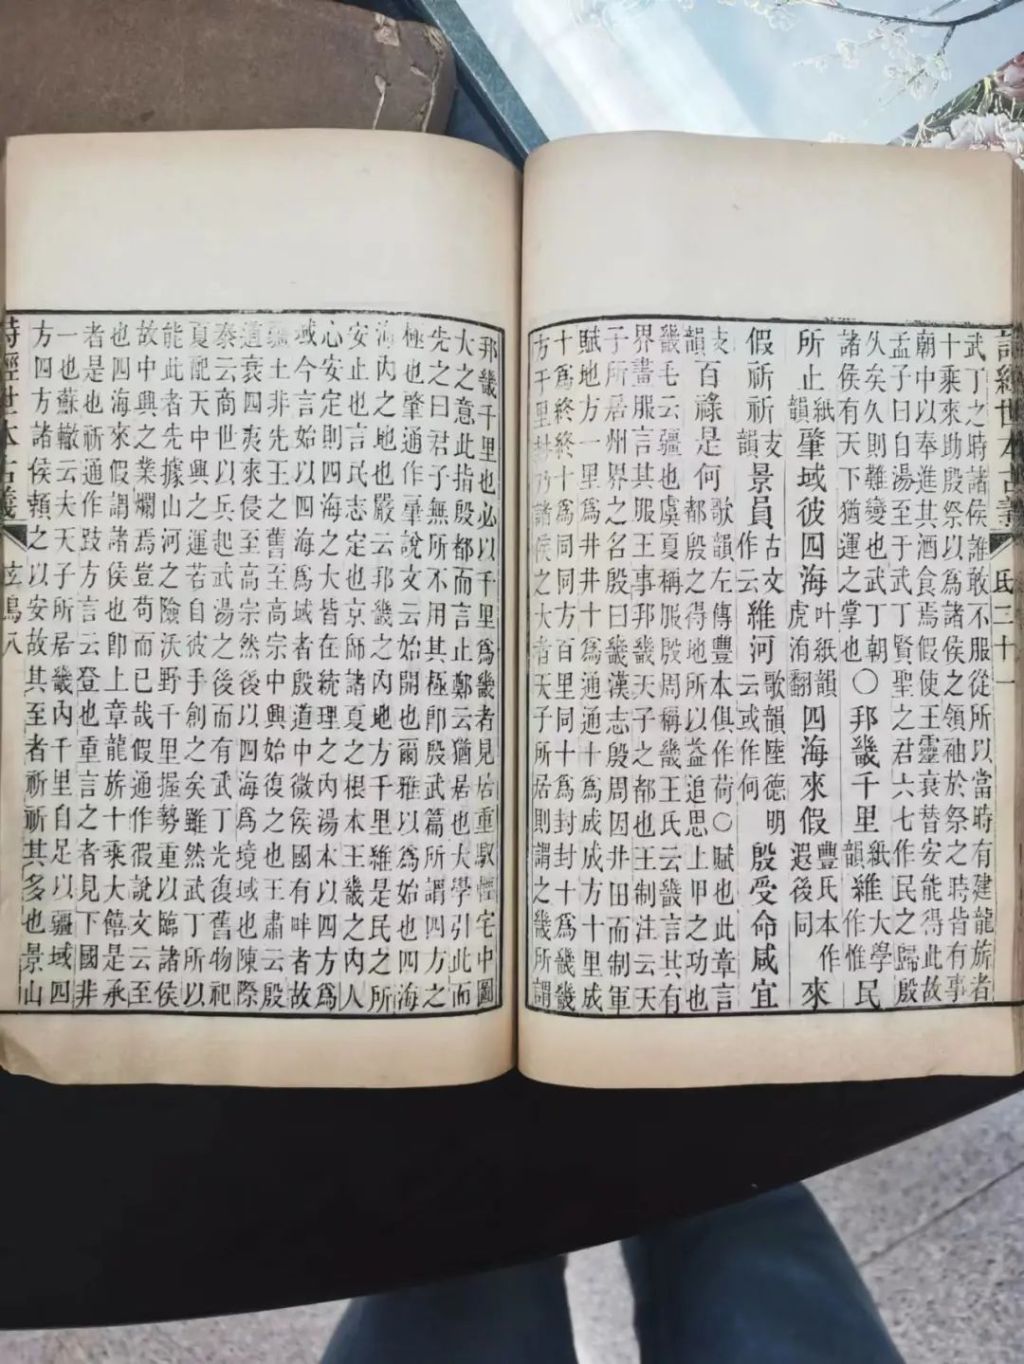 詩經世本古義 氐三十一
武丁之時諸侯誰敢不服從所以當時有建龍旂者
十乘來助殷祭以為諸侯之領袖於祭之時皆有事
朝中以奉進其酒食焉假使王靈衰替安能得此故
孟子曰自湯至于武丁賢聖之君六七作民之歸殷
久矣久則難變也武丁朝諸侯有天下猶運之掌也〇邦畿千里紙韻維大學作惟民
所止紙韻肇域彼四海叶紙韻虎洧翻四海來假豐氏本作遐後同來
假祈祈支韻景員古文作云維河歌韻陸德明云或作何殷受命咸宜
支韻百祿是何歌韻左傳豐本俱作荷〇賦也此章言都殷之得地所以益追思上甲之功也
畿毛云疆也虞夏稱服殷周稱畿王氏云畿言其有
界畫服言其服王事邦畿天子之都也王制注云天
子所居州界之名殷曰畿漢志殷周因井田而制軍
賦地方一里為井井十為通通十為成成方十里成
十為終終十為同同方百里同十為封封十為畿畿
方千里封乃諸侯之大者天子所居則謂之畿所謂
邦畿千里也必以千里為畿者見居重馭輕宅中圖
大之意此指殷都而言止鄭云猶居也大學引此而
先之曰君子無所不用其極即殷武篇所謂四方之
極也肇通作肁說文云始開也爾雅以為始也四海
海內之地也嚴云邦畿之內地方千里維是民之所
安止也言民志定也京師諸夏之根本王畿之內人
心安定則四海之大皆在統理之內湯本以四方為
域今言始以四海為域者殷道中微侯國有畔者故
疆土非先王之舊至高宗中興始復之也王肅云殷
道衰四夷來侵至高宗然後以四海為境域也陳際
泰云商世以兵起武湯之後而有武丁光復舊物祀
夏配天中興之運若自彼手創之矣雖然武丁所以
能此者先據山河之險沃野千里握勢重以臨諸侯
故中興之業爛焉豈苟而已哉假通作徦說文云至
也四海來假謂諸侯也即上章龍旂十乘大饎是承
者是也祈通作方言云登也重言之者見下國非
一也蘇轍云夫天子所居畿內千里自足以疆域四
方四方諸侯賴之以安故其至者祈祈其多也景山
詩經世本古義 玄鳥八